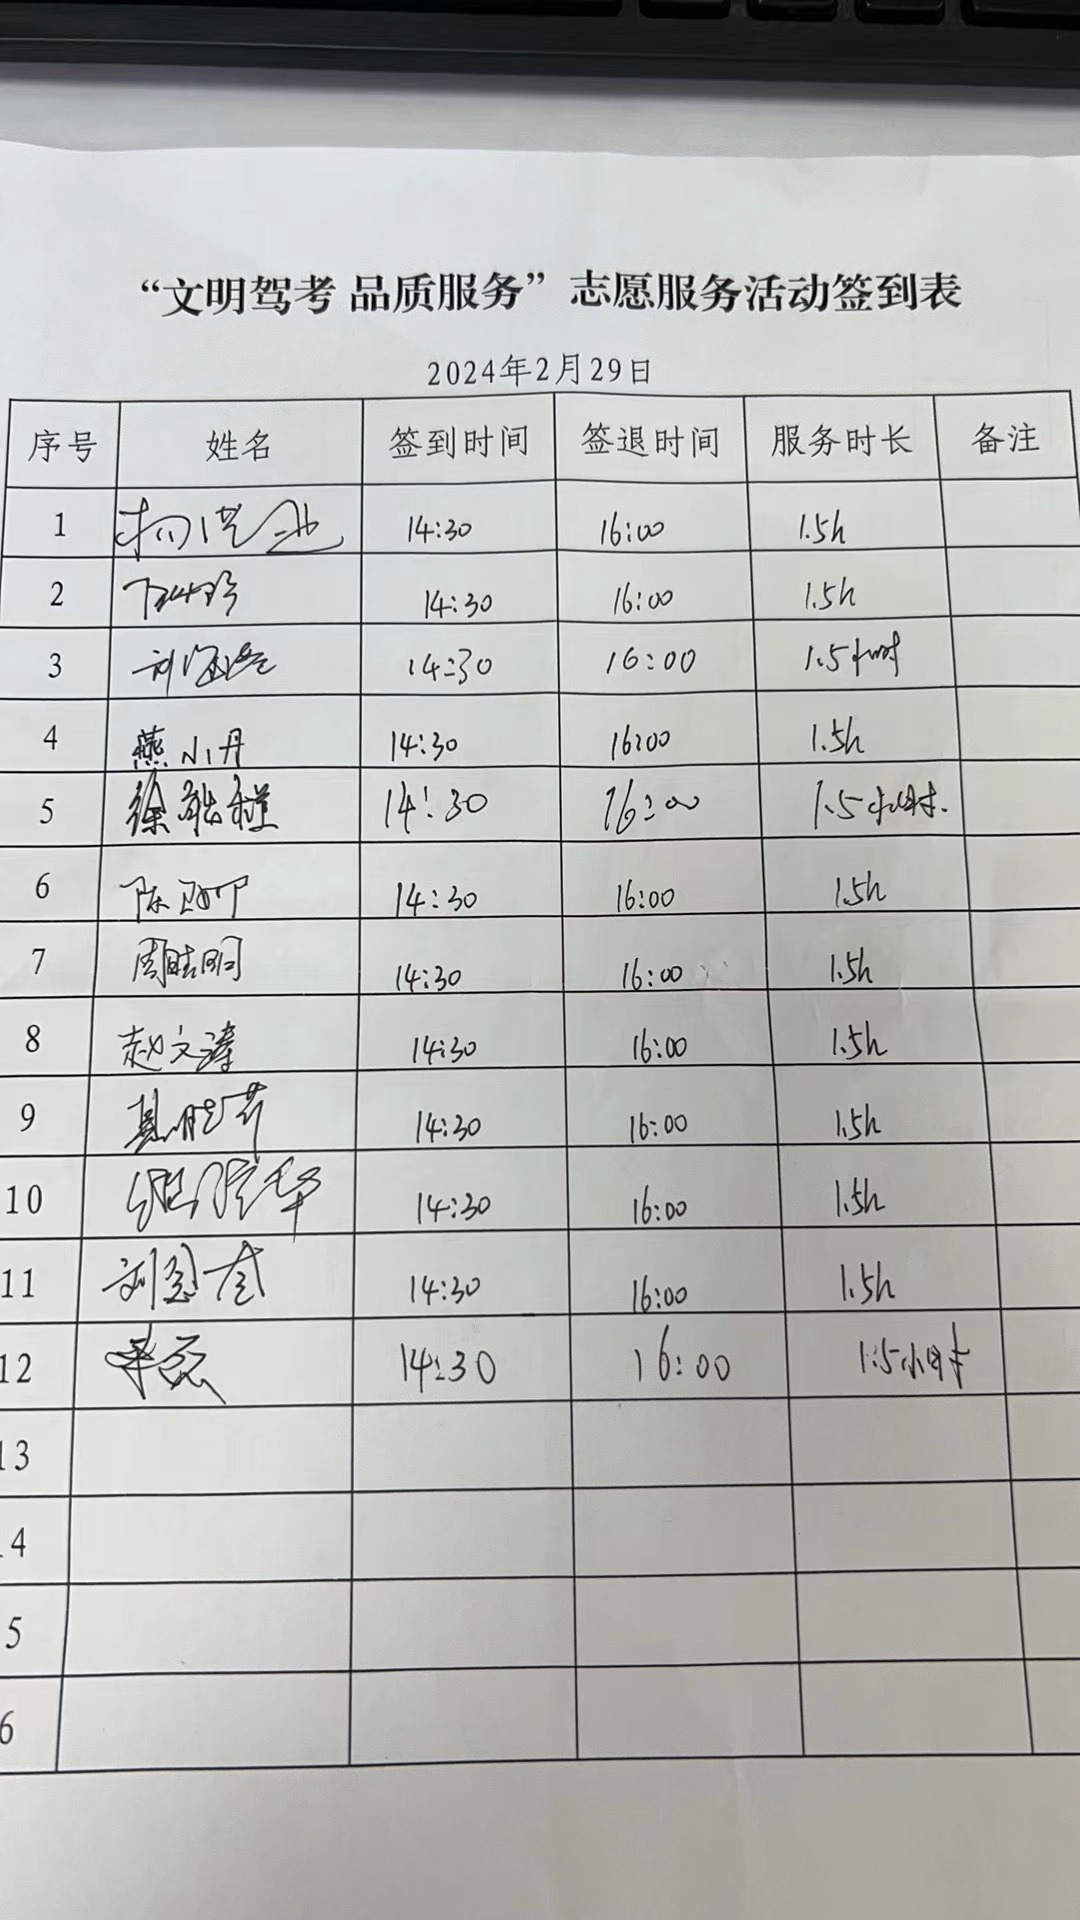 “文明驾考 品质服务”志愿服务活动签到表
2024年2月29日
序号 姓名 签到时间 签退时间 服务时长 备注
1 14:30 16:00 1.5h
2 14:30 16:00 1.5h
3 刘 14:30 16:00 1.5小时
4 燕小丹 14:30 16:00 1.5h
5 徐 14:30 16:00 1.5小时.
6 陈 14:30 16:00 1.5h
7 周 明 14:30 16:00 1.5h
8 赵文涛 14:30 16:00 1.5h
9 14:30 16:00 1.5h
10 14:30 16:00 1.5h
11 刘 14:30 16:00 1.5h
12 14:30 16:00 1.5小时
13
4
5
6